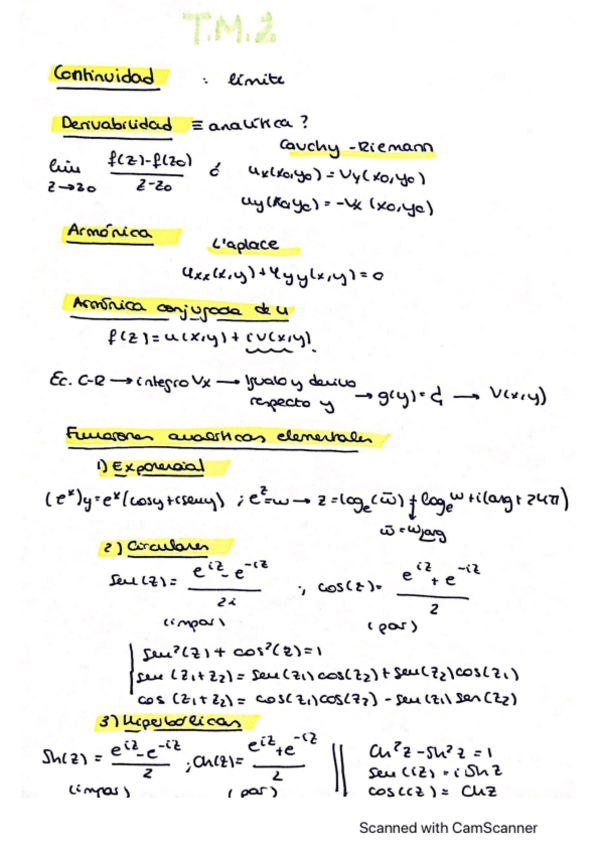 T.M.2
Continuidad : límite
Derivabilidad ≡ analítica ?
Cauchy-Riemann
lim z→z0 f(z)-f(z0) / z-z0 ó ux(x0,y0) = vy(x0,y0)
uy(x0,y0) = -vx(x0,y0)
Armónica
L'aplace
uxx(x,y)+uyy(x,y)=0
Armónica conjugada de u
f(z)=u(x,y)+iv(x,y).
Ec. C-R → integro vx → Igualo y derivo respecto y → g(y)= → v(x,y)
Funciones analíticas elementales
1) Exponencial
(e^x)y=e^x(cosy+iseny) ; e^z=w → z=log_e(w̄) log_e w+i(arg+2kπ)
w̄=w_arg
2) Circulares
sen(z)= e^iz - e^-iz / 2i ; cos(z)= e^iz + e^-iz / 2
(impar) (par)
sen²(z)+cos²(z)=1
sen(z1+z2)=sen(z1)cos(z2)+sen(z2)cos(z1)
cos(z1+z2)=cos(z1)cos(z2)-sen(z1)sen(z2)
3) Hiperbólicas
Sh(z)= e^iz - e^-iz / 2 ; Ch(z)= e^iz + e^-iz / 2
(impar) (par)
Ch²z-Sh²z=1
sen(iz)=iShz
cos(iz)=Chz
Scanned with CamScanner